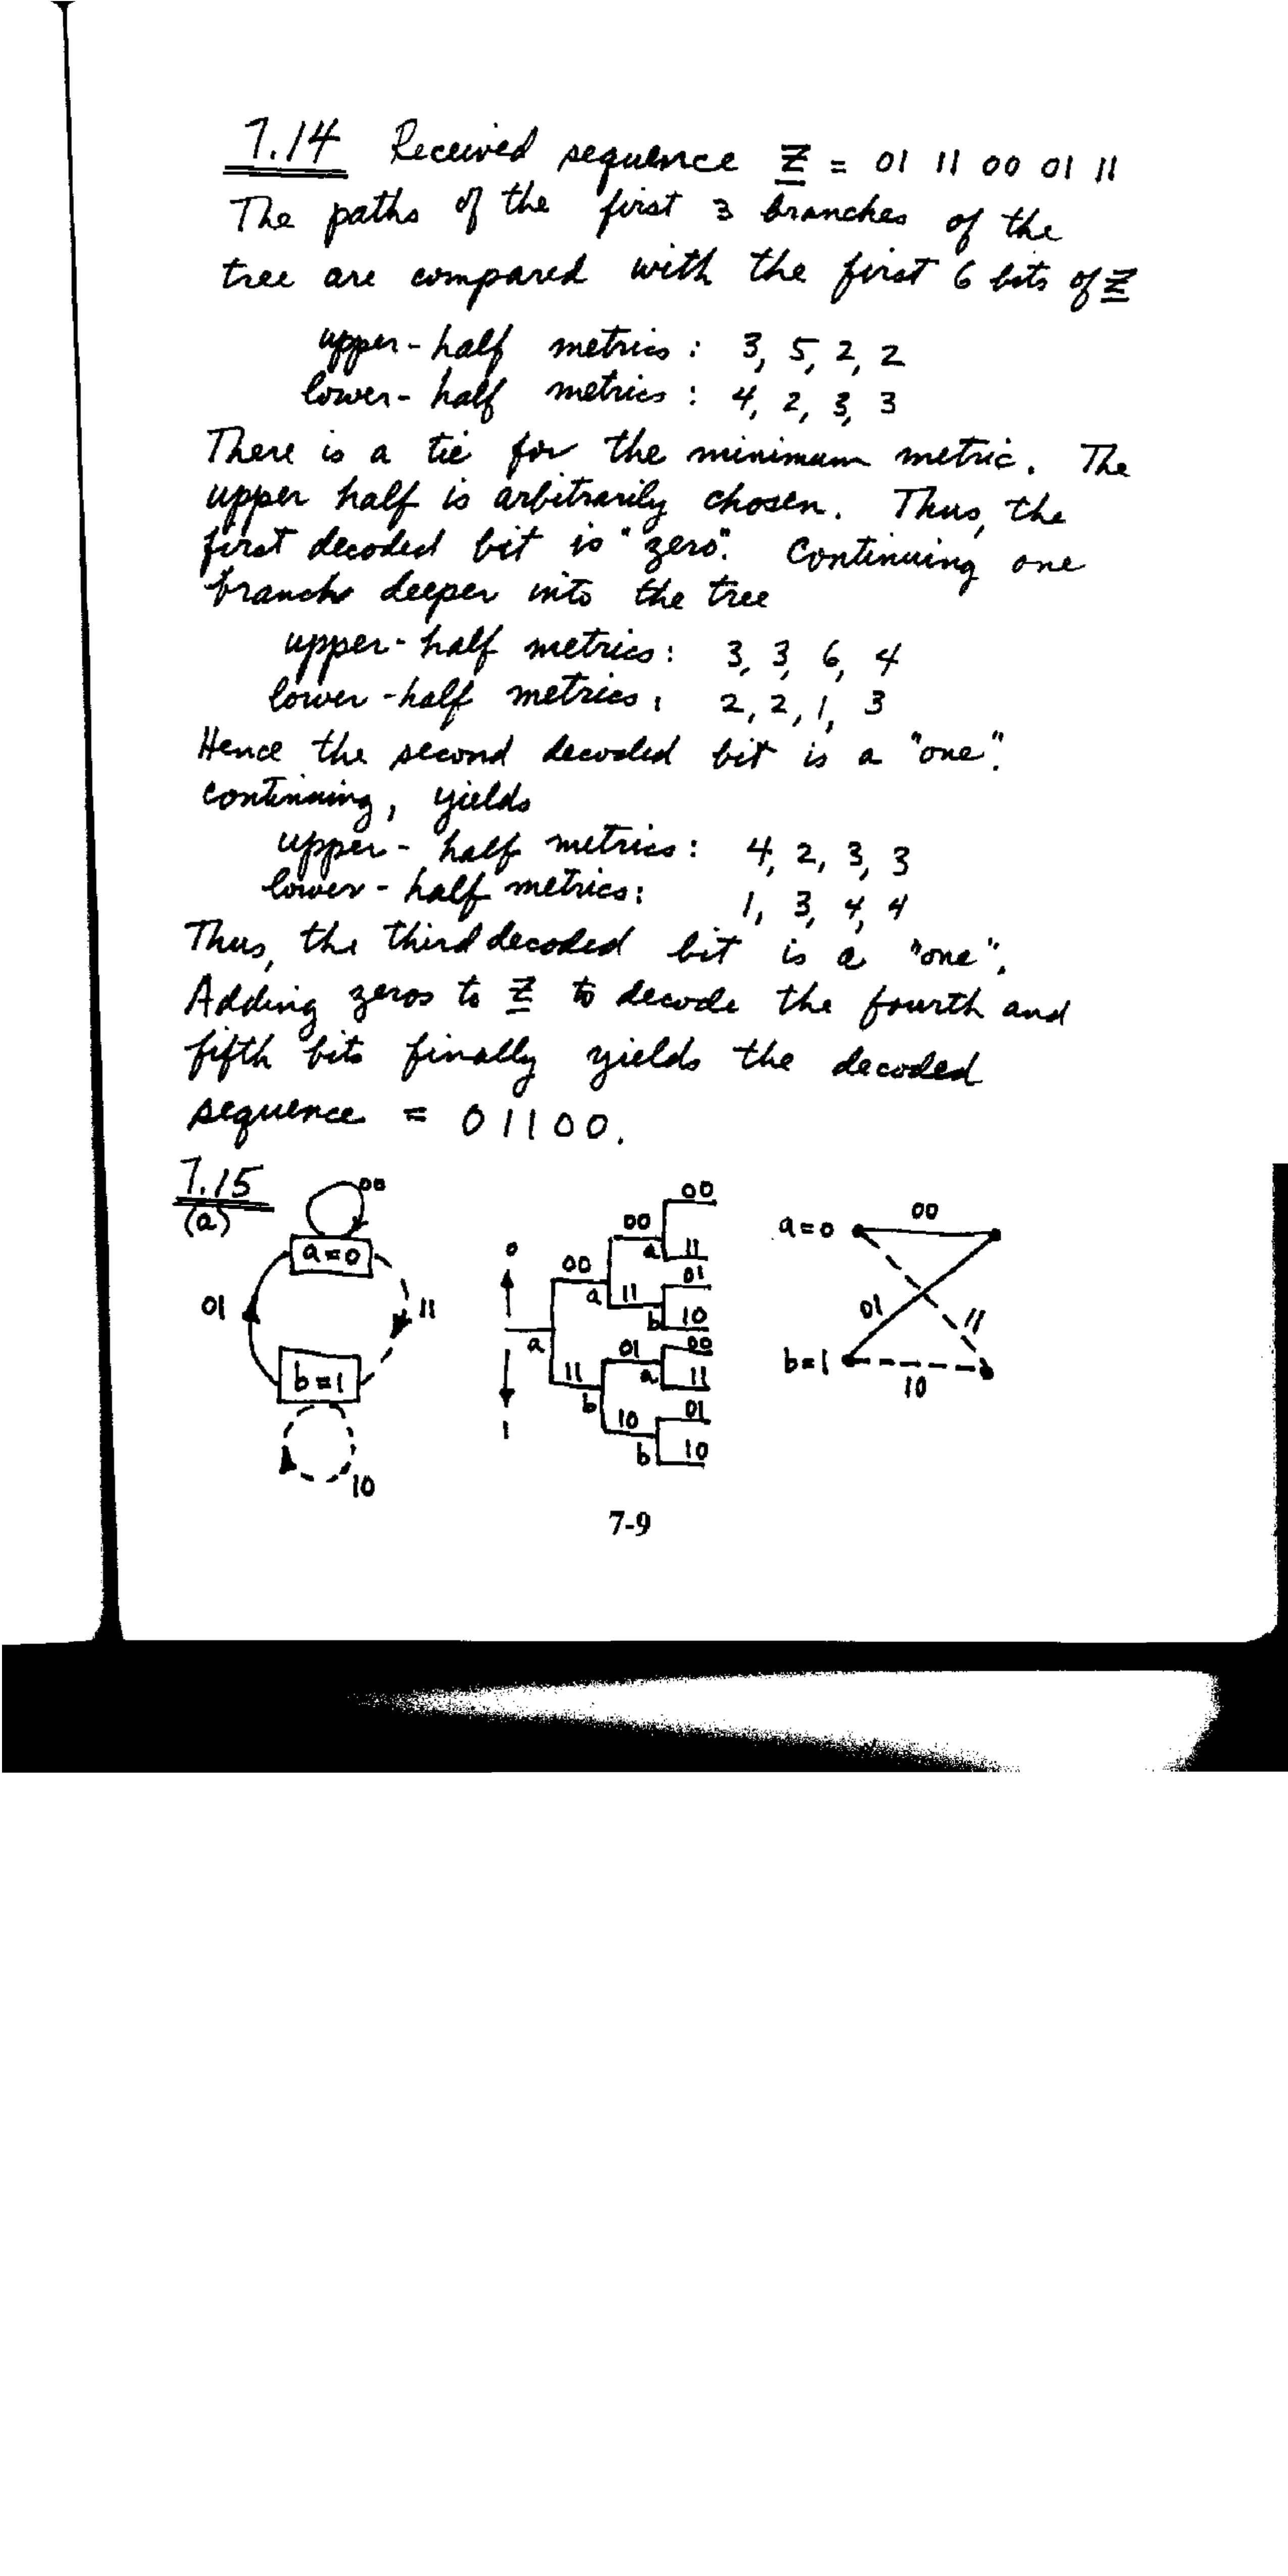 7.14 Received sequence Z = 01 11 00 01 11
The paths of the first 3 branches of the
tree are compared with the first 6 bits of Z
upper-half metrics: 3, 5, 2, 2
lower-half metrics: 4, 2, 3, 3
There is a tie for the minimum metric. The
upper half is arbitrarily chosen. Thus, the
first decoded bit is "zero". Continuing one
branch deeper into the tree
upper-half metrics: 3, 3, 6, 4
lower-half metrics: 2, 2, 1, 3
Hence the second decoded bit is a "one".
continuing, yields
upper-half metrics: 4, 2, 3, 3
lower-half metrics: 1, 3, 4, 4
Thus, the third decoded bit is a "one".
Adding zeros to Z to decode the fourth and
fifth bits finally yields the decoded
sequence = 01100.
7.15
(a)
00
a=0
01
11
b=1
10
0
1
a
00
11
a
b
00
11
01
10
a
b
a
b
00
11
01
10
00
11
01
10
a=0
00
01
11
b=1
10
7-9